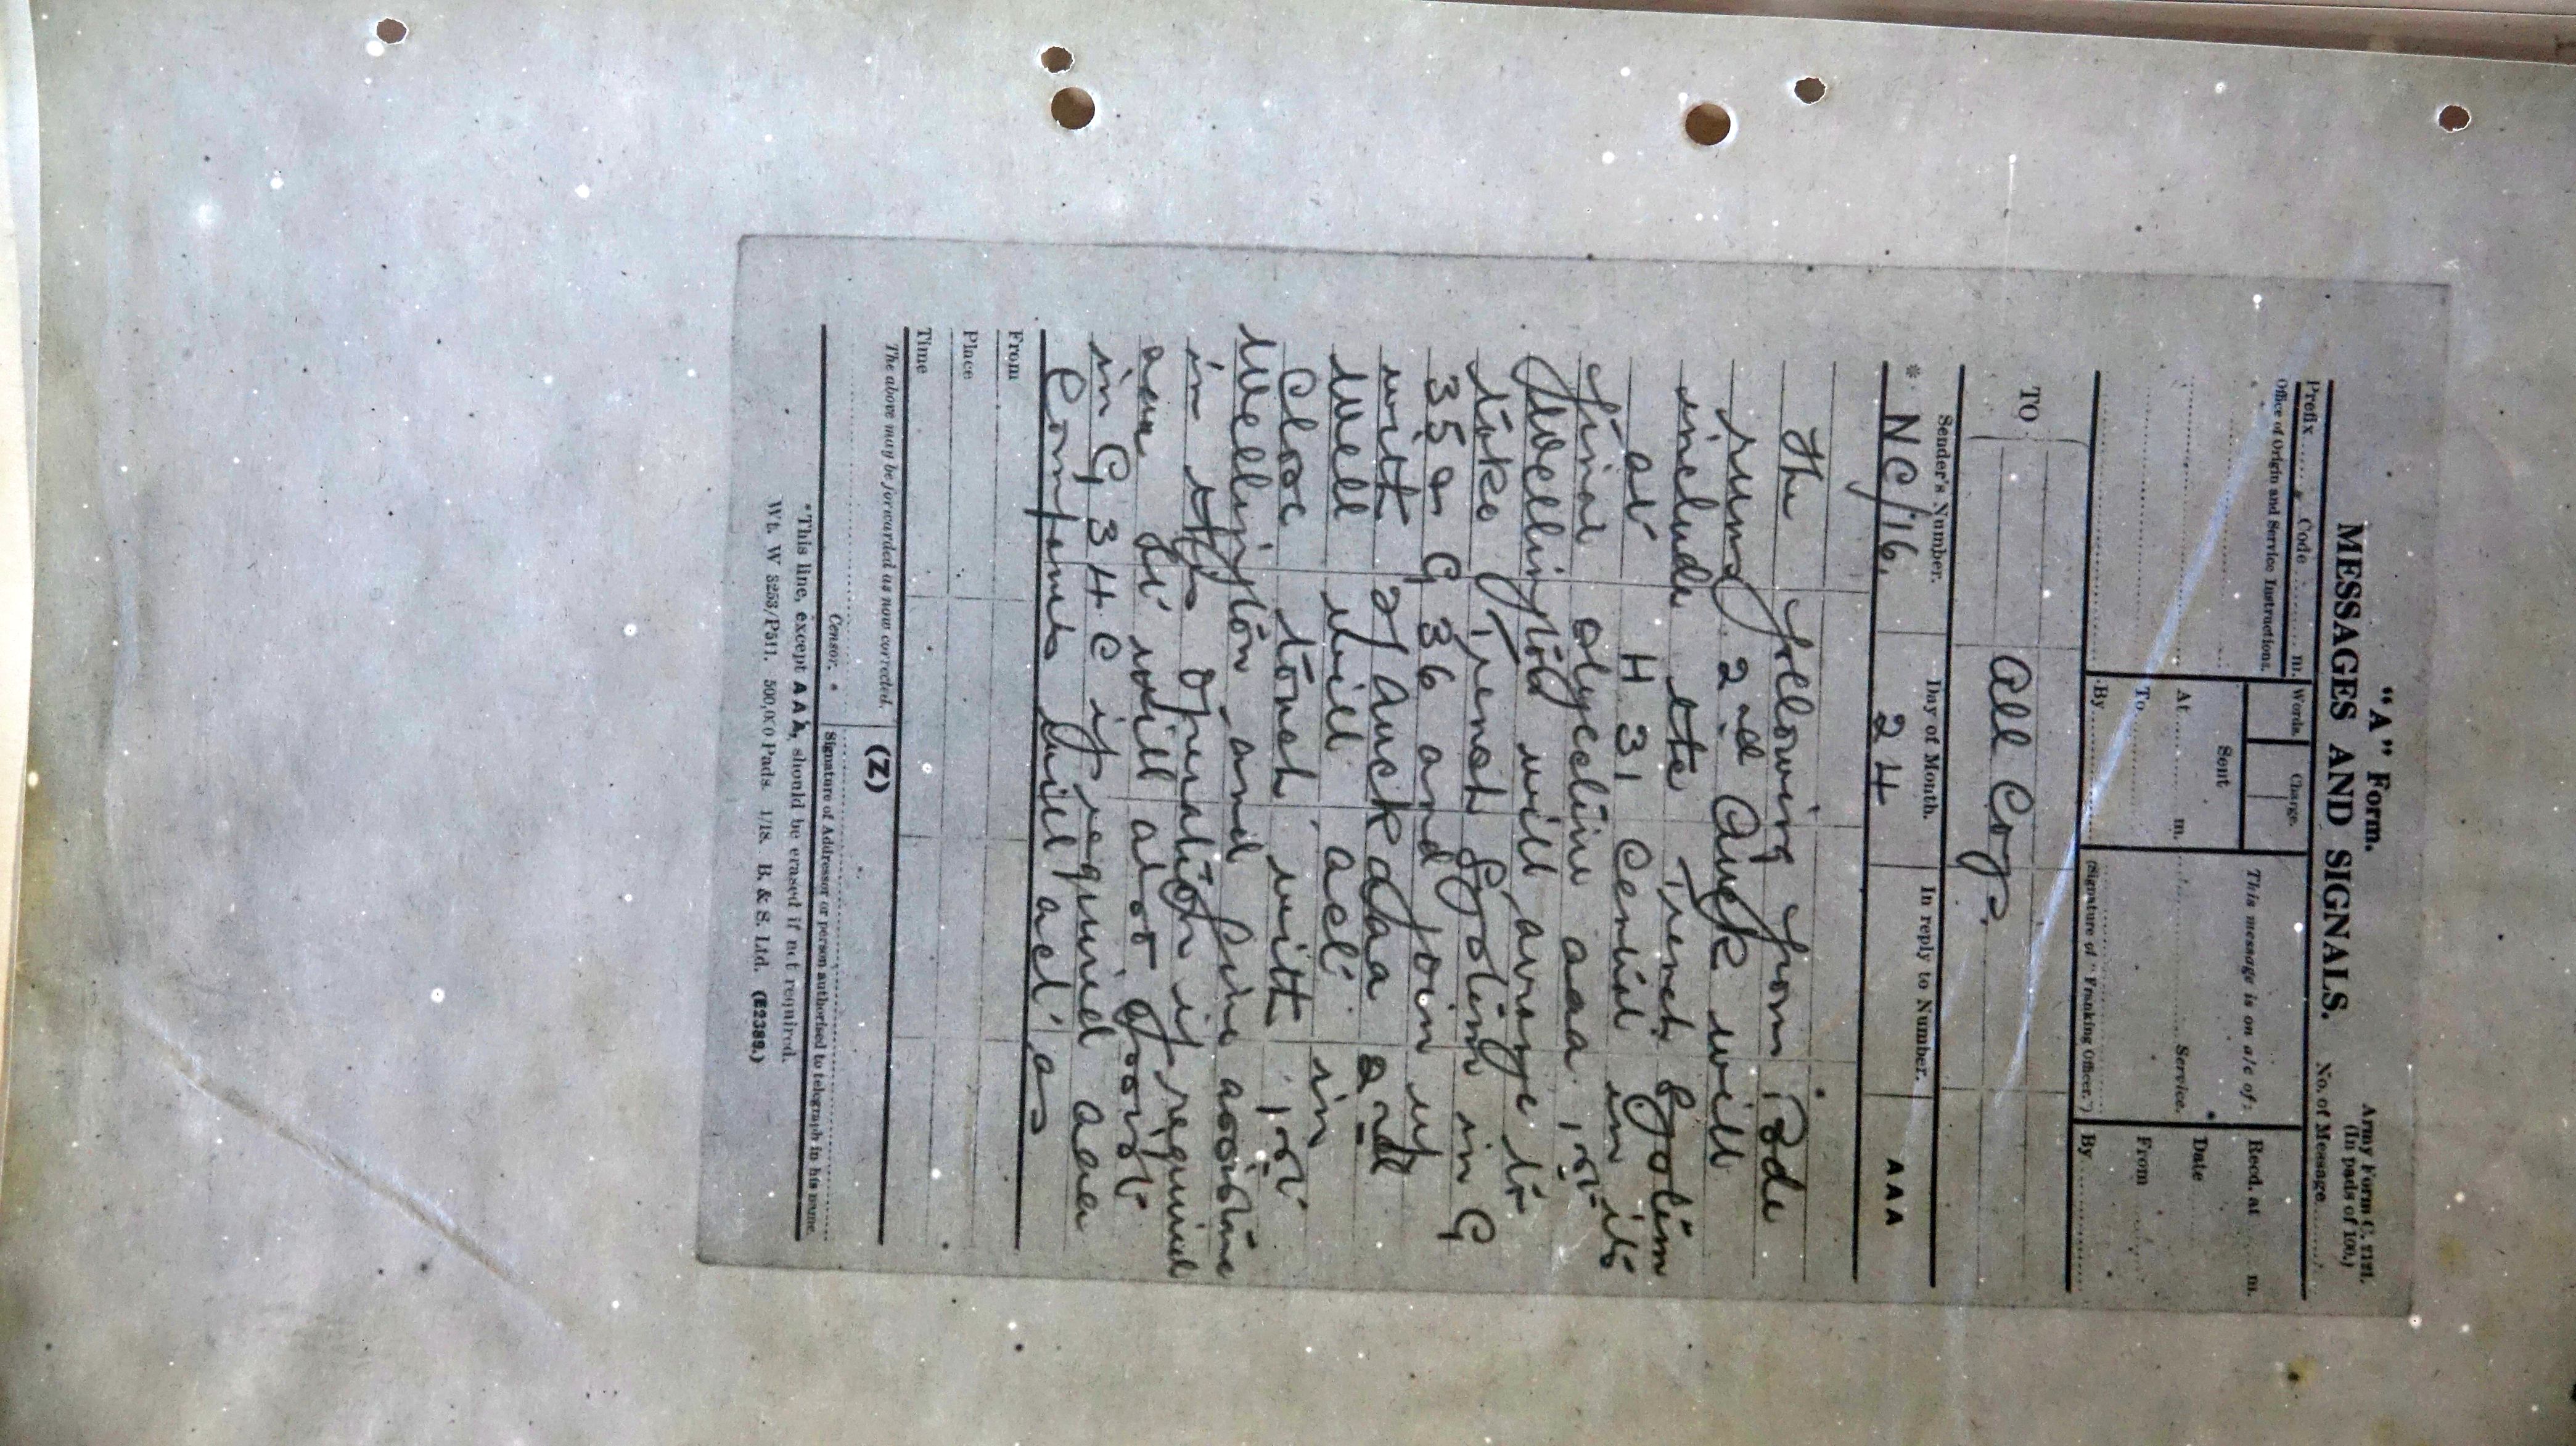 "A" Form.
MESSAGES AND SIGNALS.
Army Form C. 2121.
(In pads of 100.)
No. of Message
Prefix Code m.
Office of Origin and Service Instructions.
Words. Charge.
Sent
At m.
To
By
This message is on a/c of:
Service.
(Signature of "Franking Officer.")
Recd. at m.
Date
From
By
TO
All Coys.
Sender's Number. Day of Month. In reply to Number. AAA
* NC/16. 24
The following from Bde
runs 2nd Auck will
include the Trench System
at H 31 Central in its
final objective aaa 1st
Wellington will arrange to
take Trench System in G
35 a G 36 and join up
with 2/Auck aaa 2nd
Well will act in
close touch with 1st
Wellington and give assistance
in the operation if required
aaa It will also assist
in G 34 C if required aaa
Companies will act as
From
Place
Time
The above may be forwarded as now corrected. (Z)
Censor. Signature of Addressor or person authorised to telegraph in his name.
*This line, except AAA, should be erased if not required.
Wt. W 3253/P511. 500,000 Pads. 1/18. B. & S. Ltd. (E2389.)